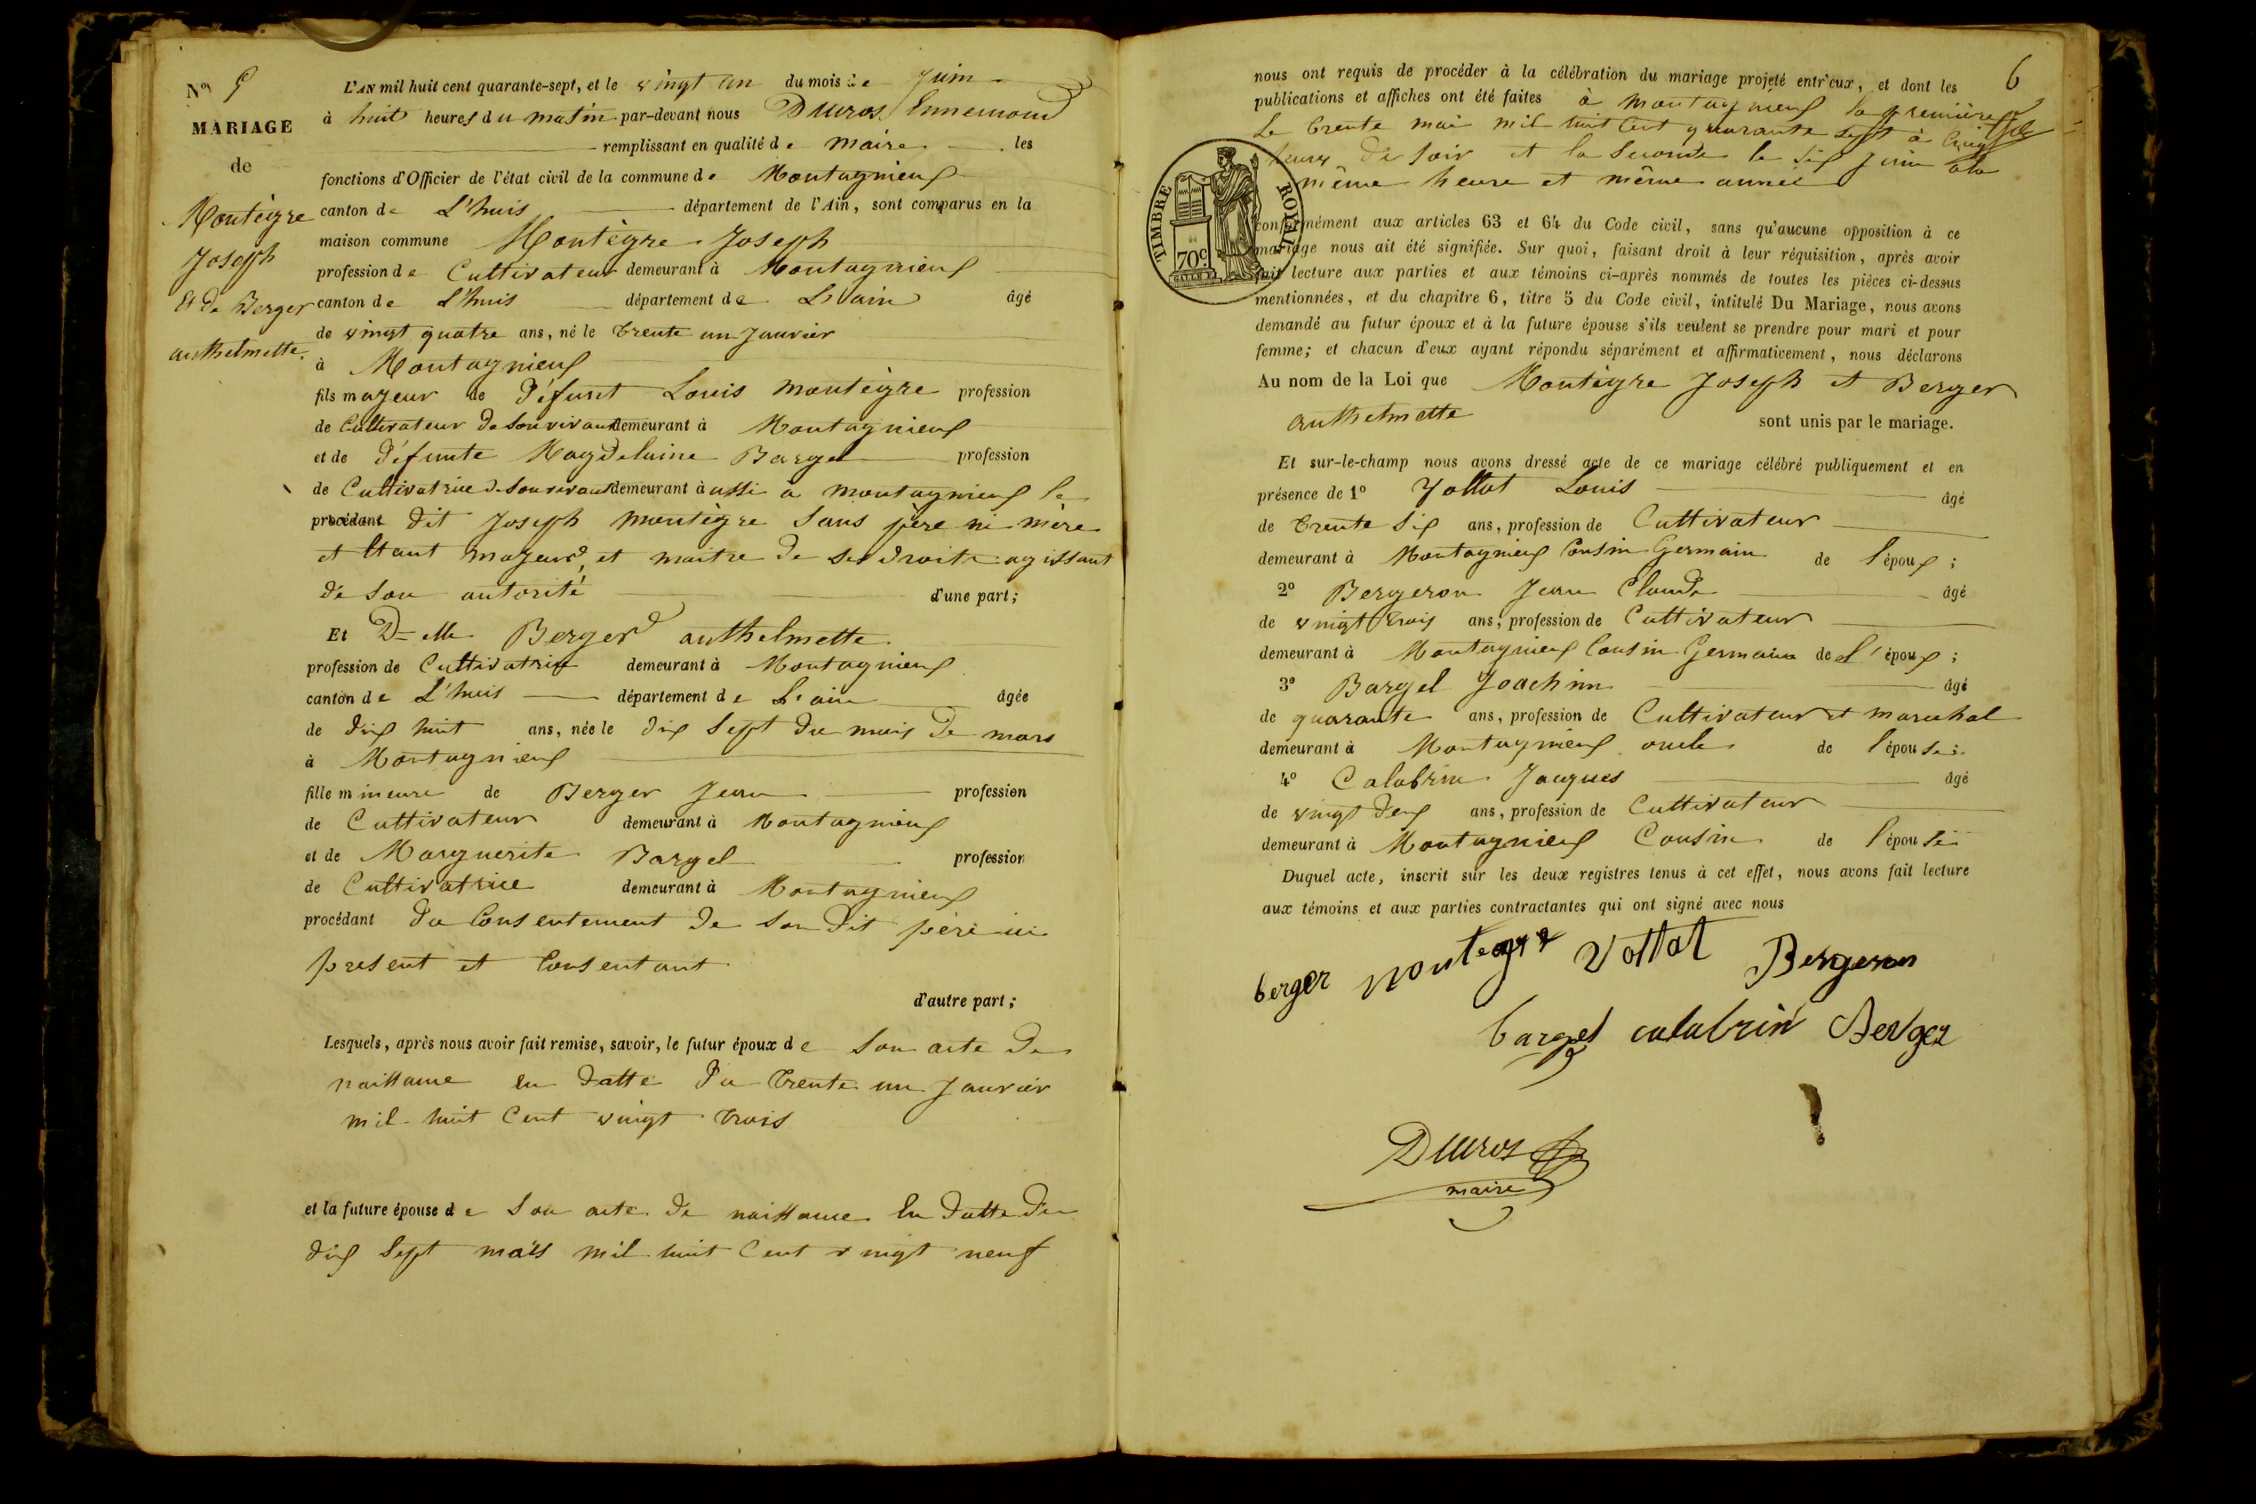 No 5
MARIAGE
de
Montègre
Joseph
Et de Berger
authelmette.
L'AN mil huit cent quarante-sept, et le vingt un du mois de Juin
à huit heures du matin par-devant nous Ducros Ennemond
remplissant en qualité de maire les
fonctions d'Officier de l'état civil de la commune de Montagnieux
canton de L'huis département de l'Ain, sont comparus en la
maison commune Montègre Joseph
profession de Cultivateur demeurant à Montagnieux
canton de L'huis département de L'ain âgé
de vingt quatre ans, né le trente un Janvier
à Montagnieux
fils majeur de défunt Louis montègre profession
de Cultivateur de Son vivant demeurant à Montagnieux
et de défunte Magdelaine Bargel profession
de Cultivatrice de Son vivant demeurant à aussi a montagnieux le
procédant dit Joseph montègre Sans père ni mère
et Etant majeur, et maitre de Ses droits agissant
de Son autorité d'une part;
Et Dlle Berger authelmette
profession de Cultivatrice demeurant à Montagnieux
canton de L'huis département de L'ain âgée
de dix huit ans, née le dix Sept du mois de mars
à Montagnieux
fille mineure de Berger Jean profession
de Cultivateur demeurant à Montagnieux
et de Marguerite Bargel profession
de Cultivatrice demeurant à Montagnieux
procédant du Consentement de Son dit père ici
présent et Consentant
d'autre part;
Lesquels, après nous avoir fait remise, savoir, le futur époux de Son acte de
naissance en datte du trente un Janvier
mil huit Cent vingt trois
et la future épouse de Son acte de naissance En datte du
dix Sept mars mil huit Cent vingt neuf
6
nous ont requis de procéder à la célébration du mariage projeté entr'eux, et dont les
publications et affiches ont été faites à montagnieux la première
Le trente mai mil huit Cent quarante Sept à Cinq
heures du Soir et la Seconde le Six Juin a la
même heure et même année
TIMBRE ROYAL
70c.
conformément aux articles 63 et 64 du Code civil, sans qu'aucune opposition à ce
mariage nous ait été signifiée. Sur quoi, faisant droit à leur réquisition, après avoir
fait lecture aux parties et aux témoins ci-après nommés de toutes les pièces ci-dessus
mentionnées, et du chapitre 6, titre 5 du Code civil, intitulé Du Mariage, nous avons
demandé au futur époux et à la future épouse s'ils veulent se prendre pour mari et pour
femme; et chacun d'eux ayant répondu séparément et affirmativement, nous déclarons
Au nom de la Loi que Montègre Joseph et Berger
authelmette sont unis par le mariage.
Et sur-le-champ nous avons dressé acte de ce mariage célébré publiquement et en
présence de 1o Vottat Louis âgé
de trente Six ans, profession de Cultivateur
demeurant à Montagnieux Cousin Germain de l'époux;
2o Bergeron Jean Claude âgé
de vingt trois ans, profession de Cultivateur
demeurant à Montagnieux Cousin Germain de l'époux;
3o Bargel Joachim âgé
de quarante ans, profession de Cultivateur et marechal
demeurant à Montagnieux oncle de l'épouse;
4o Calabrin Jacques âgé
de vingt deux ans, profession de Cultivateur
demeurant à Montagnieux Cousin de l'épouse
Duquel acte, inscrit sur les deux registres tenus à cet effet, nous avons fait lecture
aux témoins et aux parties contractantes qui ont signé avec nous
berger montegre Vottat Bergeron
bargel calabrin Berger
Ducros
maire